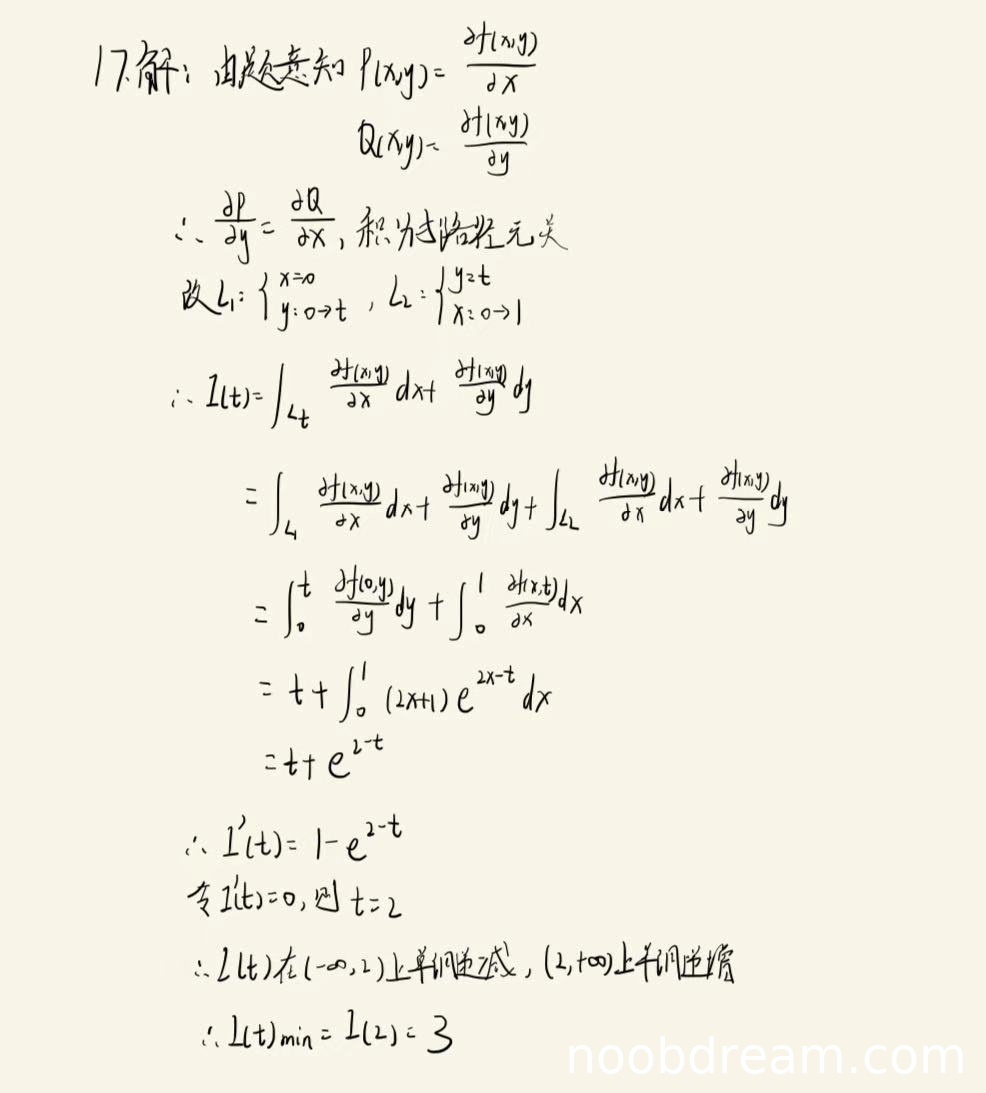 17.解：由题意知 P(x,y)= ∂f(x,y)/∂x
Q(x,y)= ∂f(x,y)/∂y
∴ ∂P/∂y = ∂Q/∂x, 积分与路径无关
改L₁: { x=0 y:0→t , L₂: { y=t x:0→1
∴ I(t)= ∫_{Lt} ∂f(x,y)/∂x dx+ ∂f(x,y)/∂y dy
= ∫_{L₁} ∂f(x,y)/∂x dx+ ∂f(x,y)/∂y dy+ ∫_{L₂} ∂f(x,y)/∂x dx+ ∂f(x,y)/∂y dy
= ∫₀^t ∂f(0,y)/∂y dy + ∫₀^1 ∂f(x,t)/∂x dx
= t+ ∫₀^1 (2x+1) e^{2x-t} dx
=t+ e^{2-t}
∴ I'(t)= 1- e^{2-t}
令I'(t)=0, 则 t=2
∴ I(t)在(-∞,2)上单调递减, (2,+∞)上单调递增
∴ I(t)min = I(2) = 3
noobdream.com